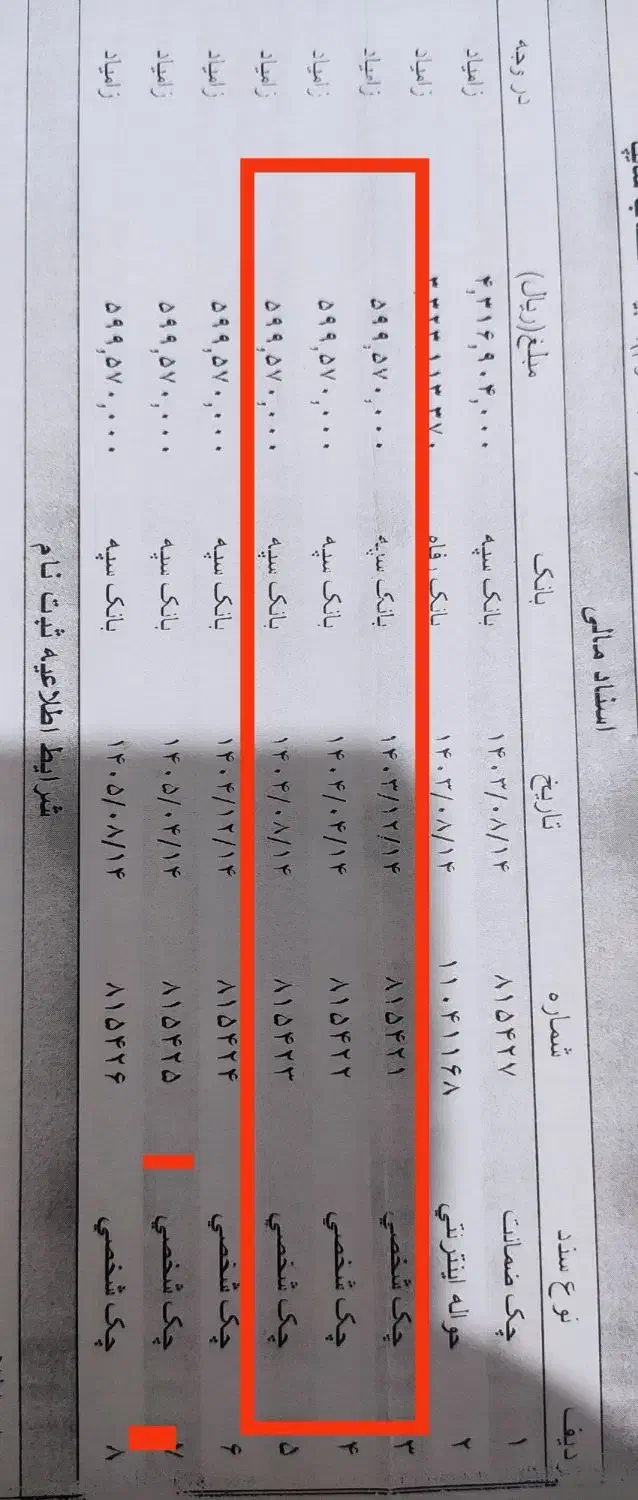 اسناد مالی
ردیف نوع سند شماره تاریخ بانک مبلغ(ریال) در وجه
۱ چک ضمانت ۸۱۵۴۲۷ ۱۴۰۳/۰۸/۱۴ بانک سپه ۴,۳۱۶,۹۰۴,۰۰۰ زامیاد
۲ حواله اینترنتی ۱۱۰۴۱۱۶۸ ۱۴۰۳/۰۸/۱۴ بانک رفاه زامیاد
۳ چک شخصي ۸۱۵۴۲۱ ۱۴۰۳/۱۲/۱۴ بانک سپه ۵۹۹,۵۷۰,۰۰۰ زامیاد
۴ چک شخصي ۸۱۵۴۲۲ ۱۴۰۴/۰۴/۱۴ بانک سپه ۵۹۹,۵۷۰,۰۰۰ زامیاد
۵ چک شخصي ۸۱۵۴۲۳ ۱۴۰۴/۰۸/۱۴ بانک سپه ۵۹۹,۵۷۰,۰۰۰ زامیاد
۶ چک شخصي ۸۱۵۴۲۴ ۱۴۰۴/۱۲/۱۴ بانک سپه ۵۹۹,۵۷۰,۰۰۰ زامیاد
۷ چک شخصي ۸۱۵۴۲۵ ۱۴۰۵/۰۴/۱۴ بانک سپه ۵۹۹,۵۷۰,۰۰۰ زامیاد
۸ چک شخصي ۸۱۵۴۲۶ ۱۴۰۵/۰۸/۱۴ بانک سپه ۵۹۹,۵۷۰,۰۰۰ زامیاد
شرایط اطلاعیه ثبت نام